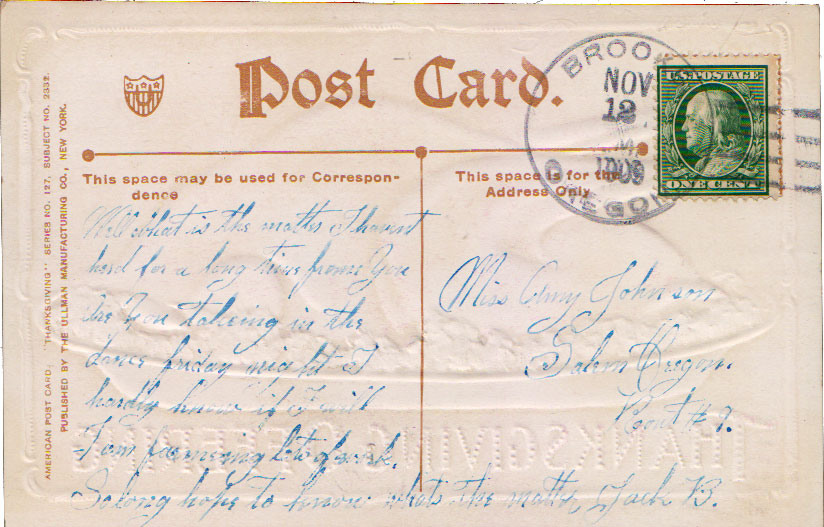 Post Card.
BROOK
NOV
12
1909
OREGON
U.S. POSTAGE
ONE CENT
This space may be used for Correspon-
dence
This space is for the
Address Only
AMERICAN POST CARD. "THANKSGIVING" SERIES NO. 127. SUBJECT NO. 2332.
PUBLISHED BY THE ULLMAN MANUFACTURING CO., NEW YORK.
Well what is the matter I havent
herd for a long time from You
are You takeing in the
dance friday night I
hardly know if I will
I am farmeing lots of work.
So long hope to know whats the matter, Jack B.
Miss Amy Johnson
Salem Oregon.
Rout #
THANKSGIVING OFFERING